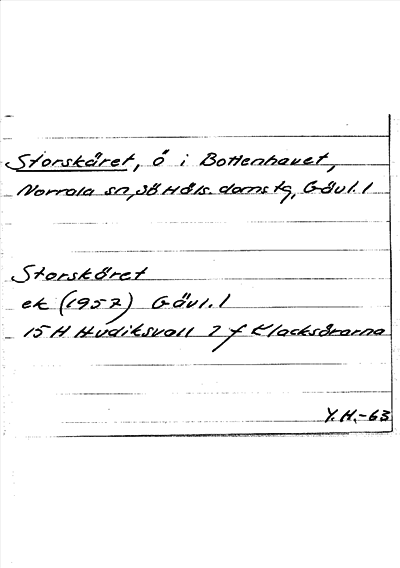 Storskäret, ö i Bottenhavet,
Norrala sn, SöHäls. doms tg, Gävl. l
Storskäret
ek (1957) Gävl. l
15 H Hudiksvall 2 f Klacksörarna
Y.H.-63